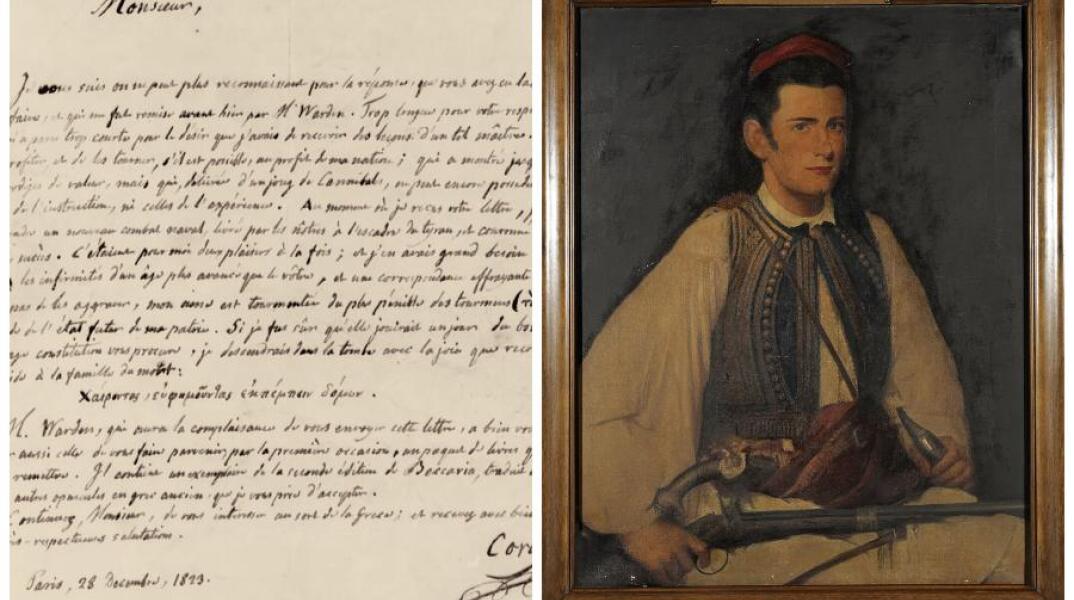 Monsieur,
Je vous suis on ne peut plus reconnaissant pour la réponse, que vous avez eu la
faire, et qui me fut remise avant hier par Mr Warden. Trop longue pour votre
a paru trop courte pour le désir que j'avais de recevoir des leçons d'un tel maître.
profiter et de les tourner, s'il est possible, au profit de ma nation; qui a montré
prodiges de valeur, mais qui, délivrée d'un joug de Cannibals, ne peut encore
de l'instruction, ni celles de l'expérience. Au moment où je reçus votre lettre,
un nouveau combat naval, livré par les nôtres à l'escadre du tyran, et
succès. C'étaient pour moi deux plaisirs à la fois; et j'en avais grand besoin
les infirmités d'un âge plus avancé que le vôtre, et une correspondance effrayante
pas de les aggraver, mon ame est tourmentée du plus pénible des tourmens
de l'état futur de ma patrie. Si je fus sûr qu'elle jouirait un jour du
sage constitution vous procure, je descendrais dans la tombe avec la joie que
à la famille du mort:
χαίροντας, εὐφημοῦντας ἐκπέμπειν δόμων.
M. Warden, qui aura la complaisance de vous envoyer cette lettre, a bien
aussi celle de vous faire parvenir par la première occasion, un paquet de livres
remettre. Il contient un exemplaire de la seconde édition de Beccaria, traduit
autres opuscules en grec ancien que je vous prie d'accepter.
Continuez, Monsieur, de vous intéresser au sort de la Grèce; et recevez avec
respectueuses salutations.
Paris, 28 Decembre, 1823.